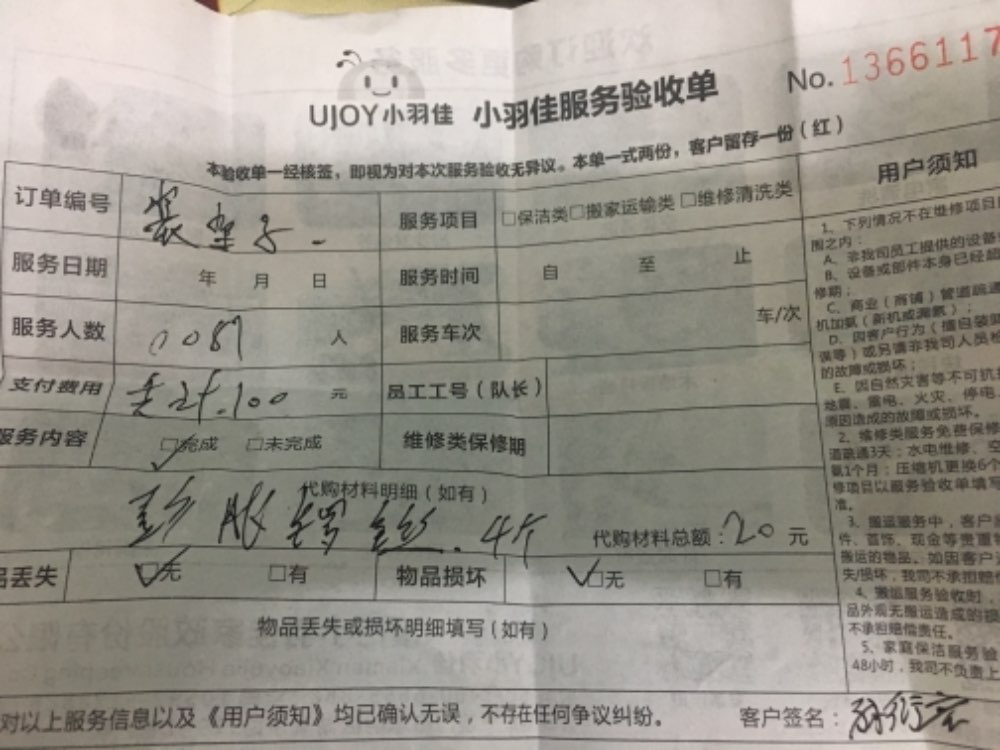 UJOY小羽佳 小羽佳服务验收单 No. 1366117
本验收单一经核签，即视为对本次服务验收无异议。本单一式两份，客户留存一份（红）
订单编号 装 子 服务项目 □保洁类□搬家运输类 □维修清洗类
服务日期 年 月 日 服务时间 自 至 止
服务人数 0087 人 服务车次 车/次
支付费用 100 元 员工工号（队长）
服务内容 □完成 □未完成 维修类保修期
代购材料明细（如有）
膨胀螺丝.4个 代购材料总额：20元
品丢失 □无 □有 物品损坏 □无 □有
物品丢失或损坏明细填写（如有）
对以上服务信息以及《用户须知》均已确认无误，不存在任何争议纠纷。 客户签名：
用户须知
1、下列情况不在维修项目
围之内：
A、非我司员工提供的设备
B、设备或部件本身已经超
修期；
C、商业（商铺）管道疏通
机加氨（新机或漏氨）；
D、因客户行为（擅自装
误等）或另请非我司人员
的故障或损坏；
E、因自然灾害等不可抗
地震、雷电、火灾、停电
原因造成的故障或损坏。
2、维修类服务免费保修
道疏通3天；水电维修、空
氨1个月；压缩机更换6个
修项目以服务验收单填写
准。
3、搬运服务中，客户
件、首饰、现金等贵重
搬运的物品。如因客户
失/损坏，我司不承担赔
4、搬运服务验收时，
品外观无搬运造成的
不承担赔偿责任。
5、家庭保洁服务验
48小时，我司不负责上